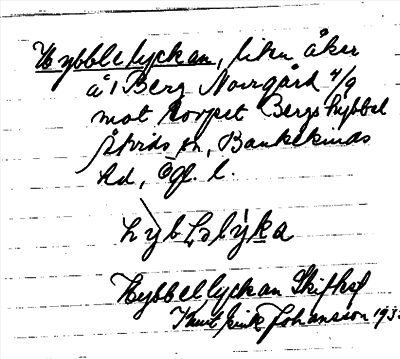 Hybblelyckan, liten åker
å 1 Berg Norrgård 4/9
mot torpet Bergs hybbel
Åtvids sn, Bankekinds
hd, Ögl. l.
hybblelyckan Skifksf
Knut Johansson 193